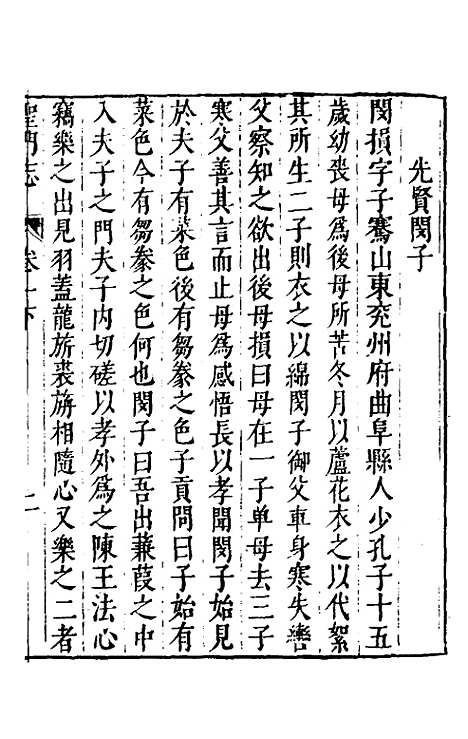 先賢閔子
閔損字子騫山東兖州府曲阜縣人少孔子十五
歲幼喪母爲後母所苦冬月以蘆花衣之以代絮
其所生二子則衣之以綿閔子御父車身寒失轡
父察知之欲出後母損曰母在一子单母去三子
寒父善其言而止母爲感悟長以孝聞閔子始見
於夫子有菜色後有芻豢之色子貢問曰子始有
菜色今有芻豢之色何也閔子曰吾出蒹葭之中
入夫子之門夫子内切磋以孝外爲之陳王法心
竊樂之出見羽蓋龍旂裘旃相隨心又樂之二者
聖門志 卷一下 二